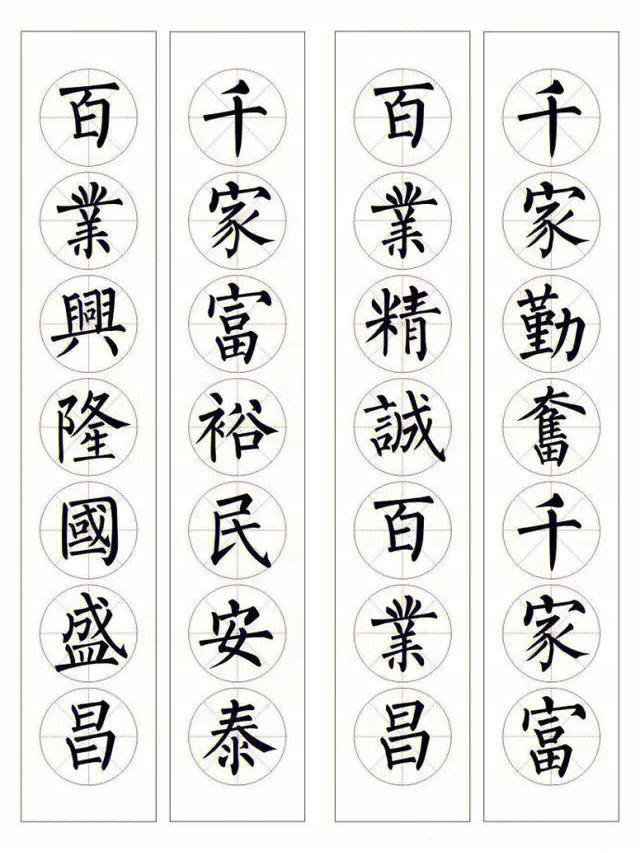 千家勤奮千家富
百業精誠百業昌
千家富裕民安泰
百業興隆國盛昌